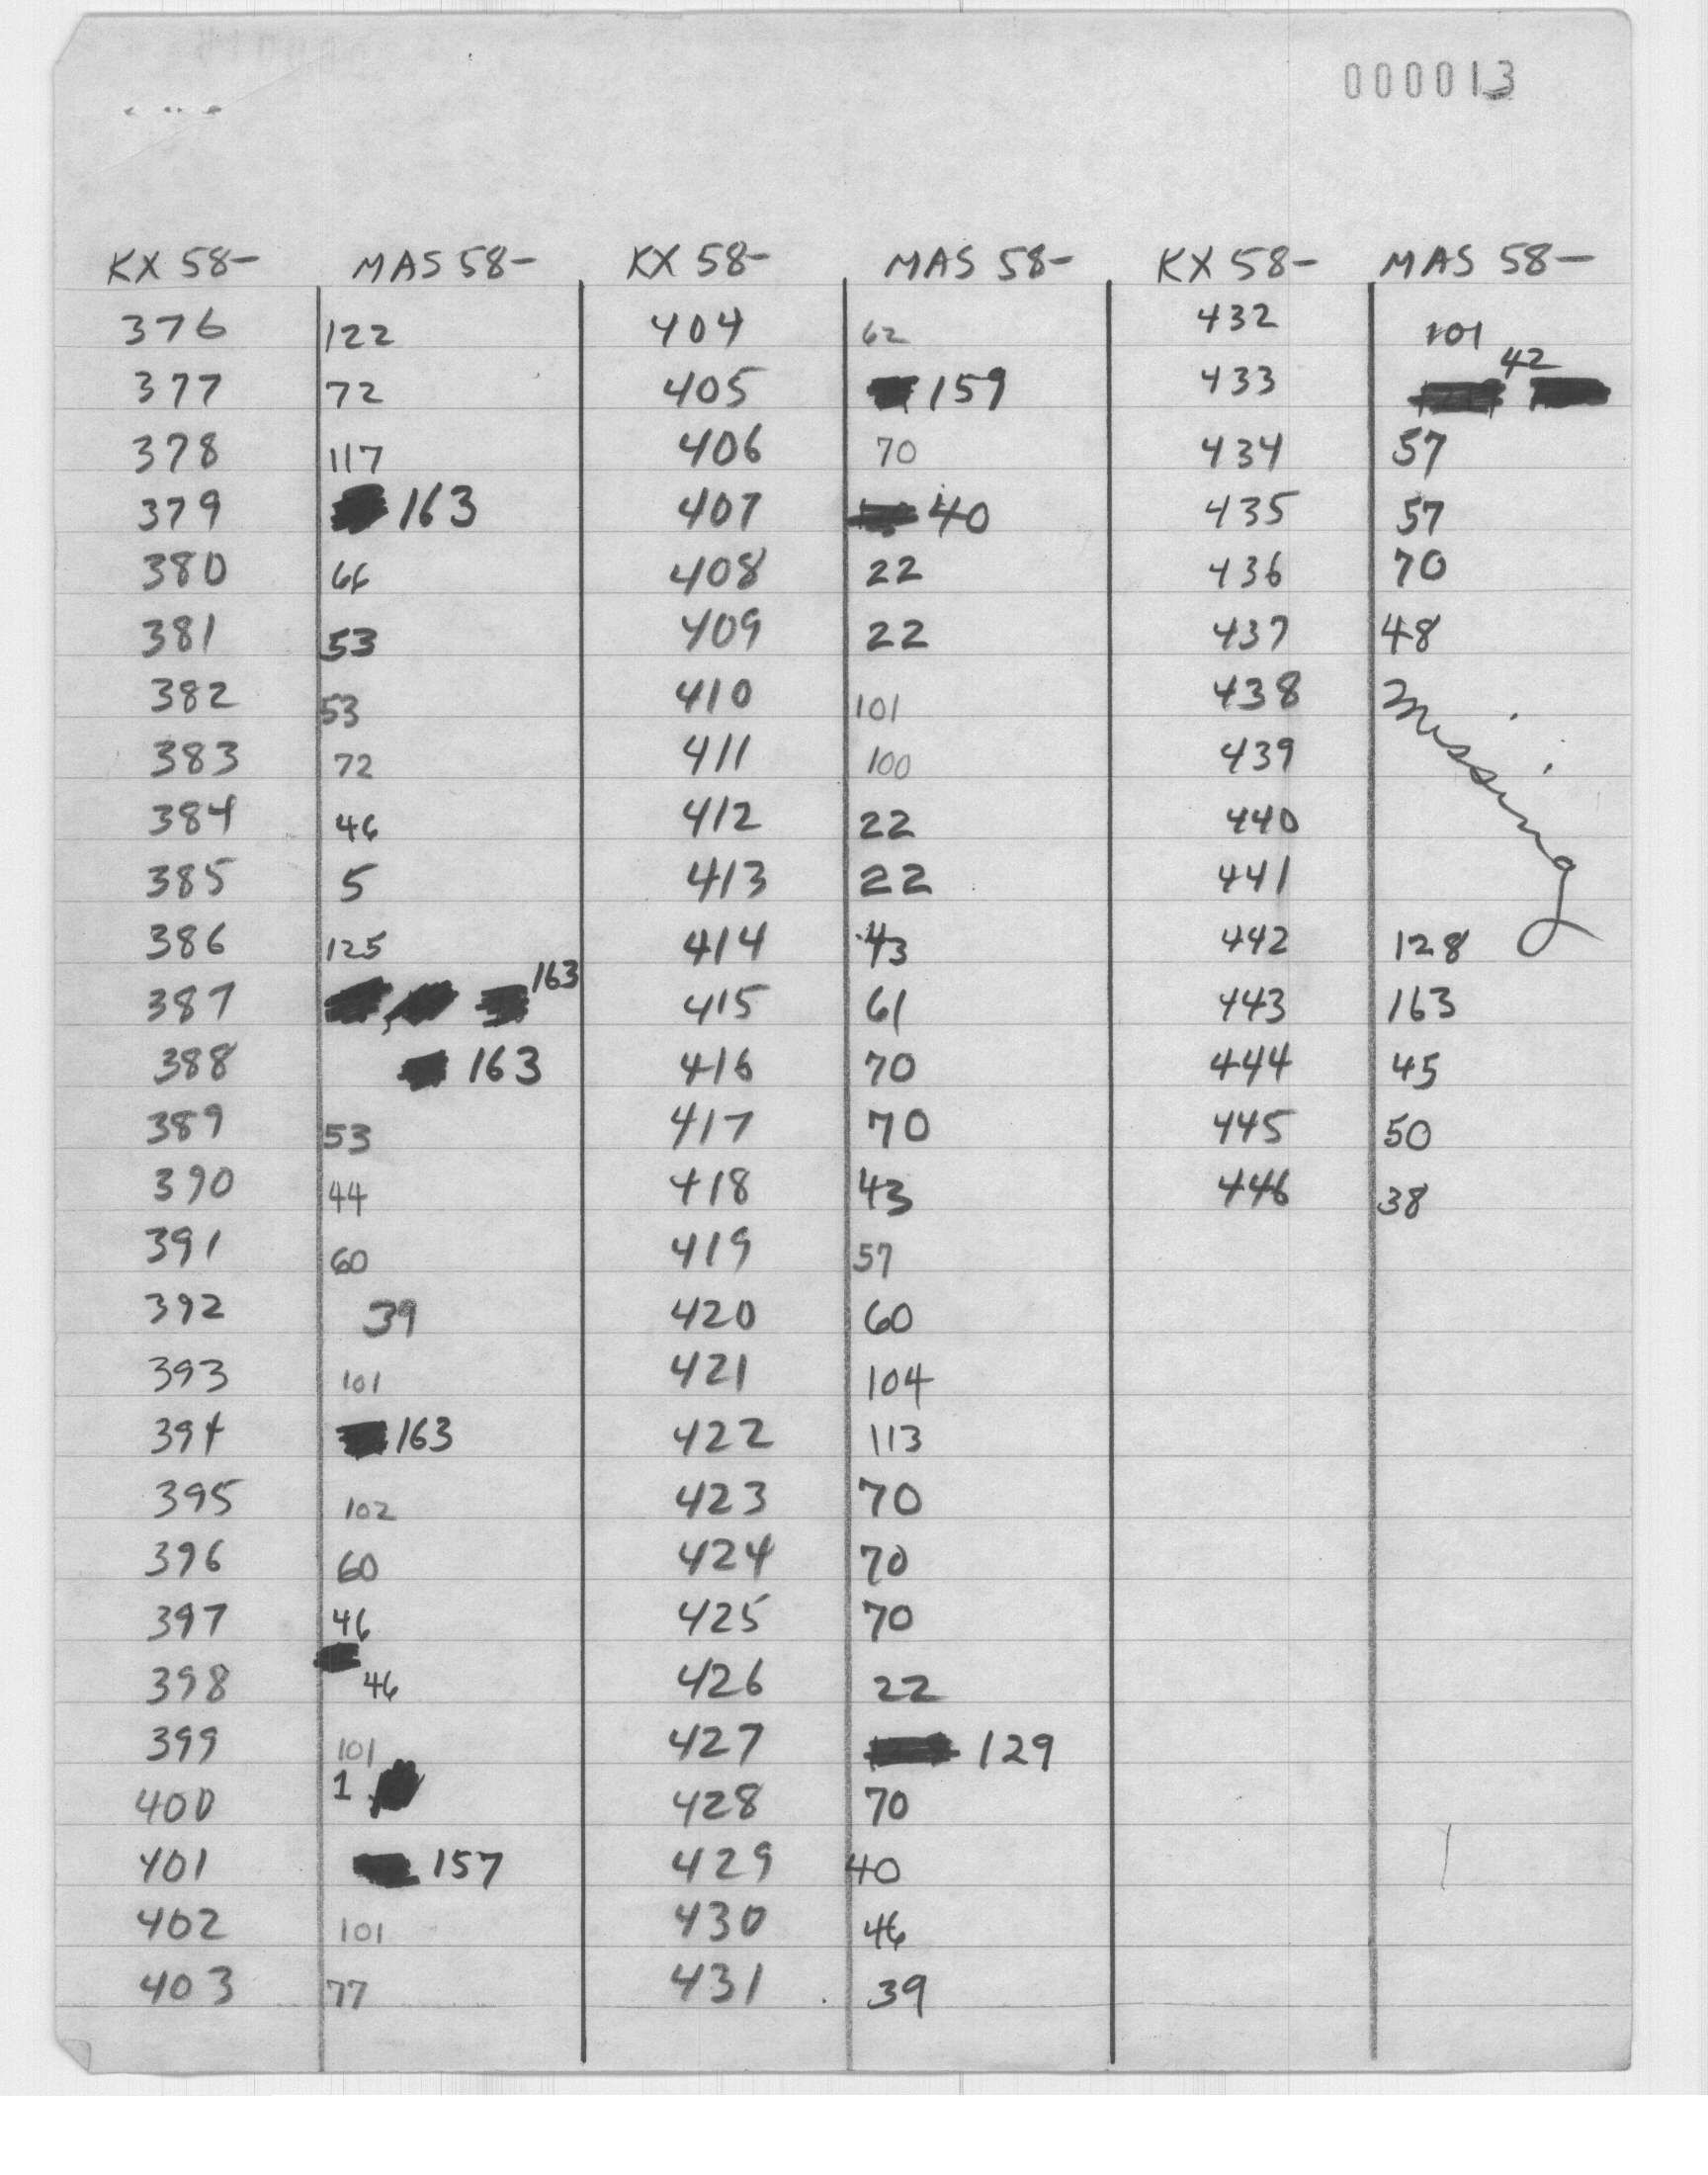 000013
KX 58- MAS 58- KX 58- MAS 58- KX 58- MAS 58-
376 122 404 62 432 101
377 72 405 159 433 42
378 117 406 70 434 57
379 163 407 40 435 57
380 66 408 22 436 70
381 53 409 22 437 48
382 53 410 101 438 Missing
383 72 411 100 439
384 46 412 22 440
385 5 413 22 441
386 125 414 43 442 128
387 163 415 61 443 163
388 163 416 70 444 45
389 53 417 70 445 50
390 44 418 43 446 38
391 60 419 57
392 39 420 60
393 101 421 104
394 163 422 113
395 102 423 70
396 60 424 70
397 46 425 70
398 46 426 22
399 101 427 129
400 1 428 70
401 157 429 40
402 101 430 46
403 77 431 39